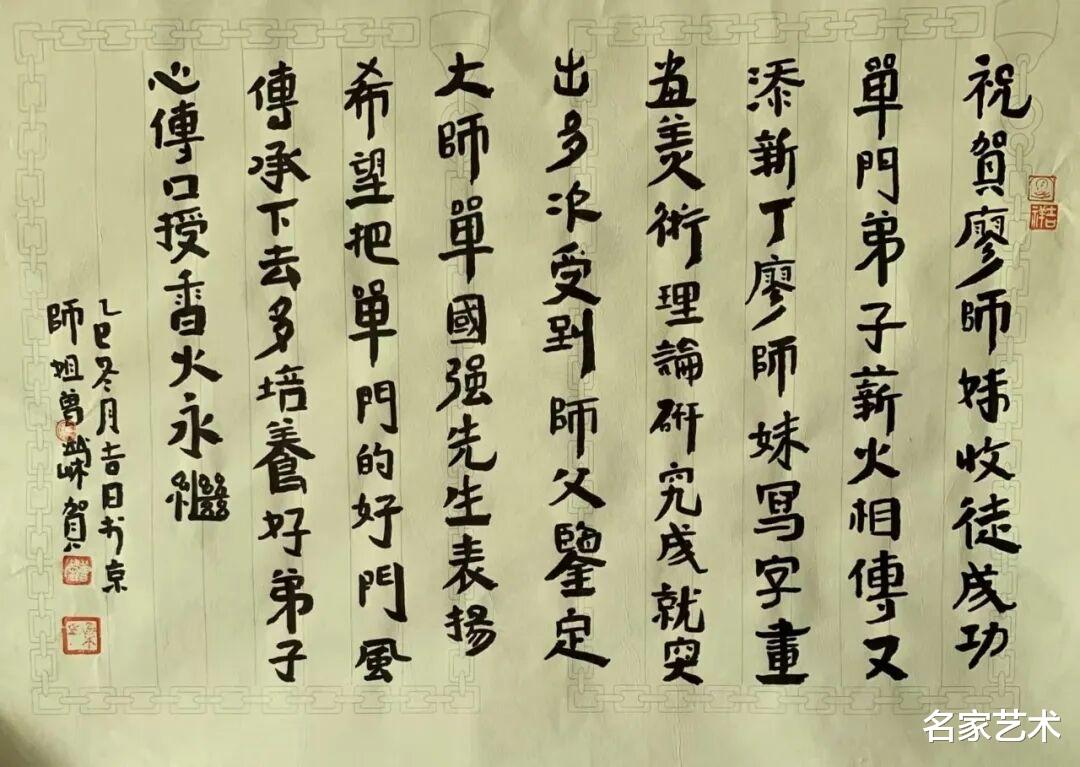 祝賀廖師妹收徒成功
單門弟子薪火相傳又
添新丁廖師妹寫字畫
畫美術理論研究成就突
出多次受到師父鑒定
大師單國强先生表揚
希望把單門的好門風
傳承下去多培養好弟子
心傳口授香火永繼
乙巳冬月吉日书京
師姐曾 賀
名家艺术